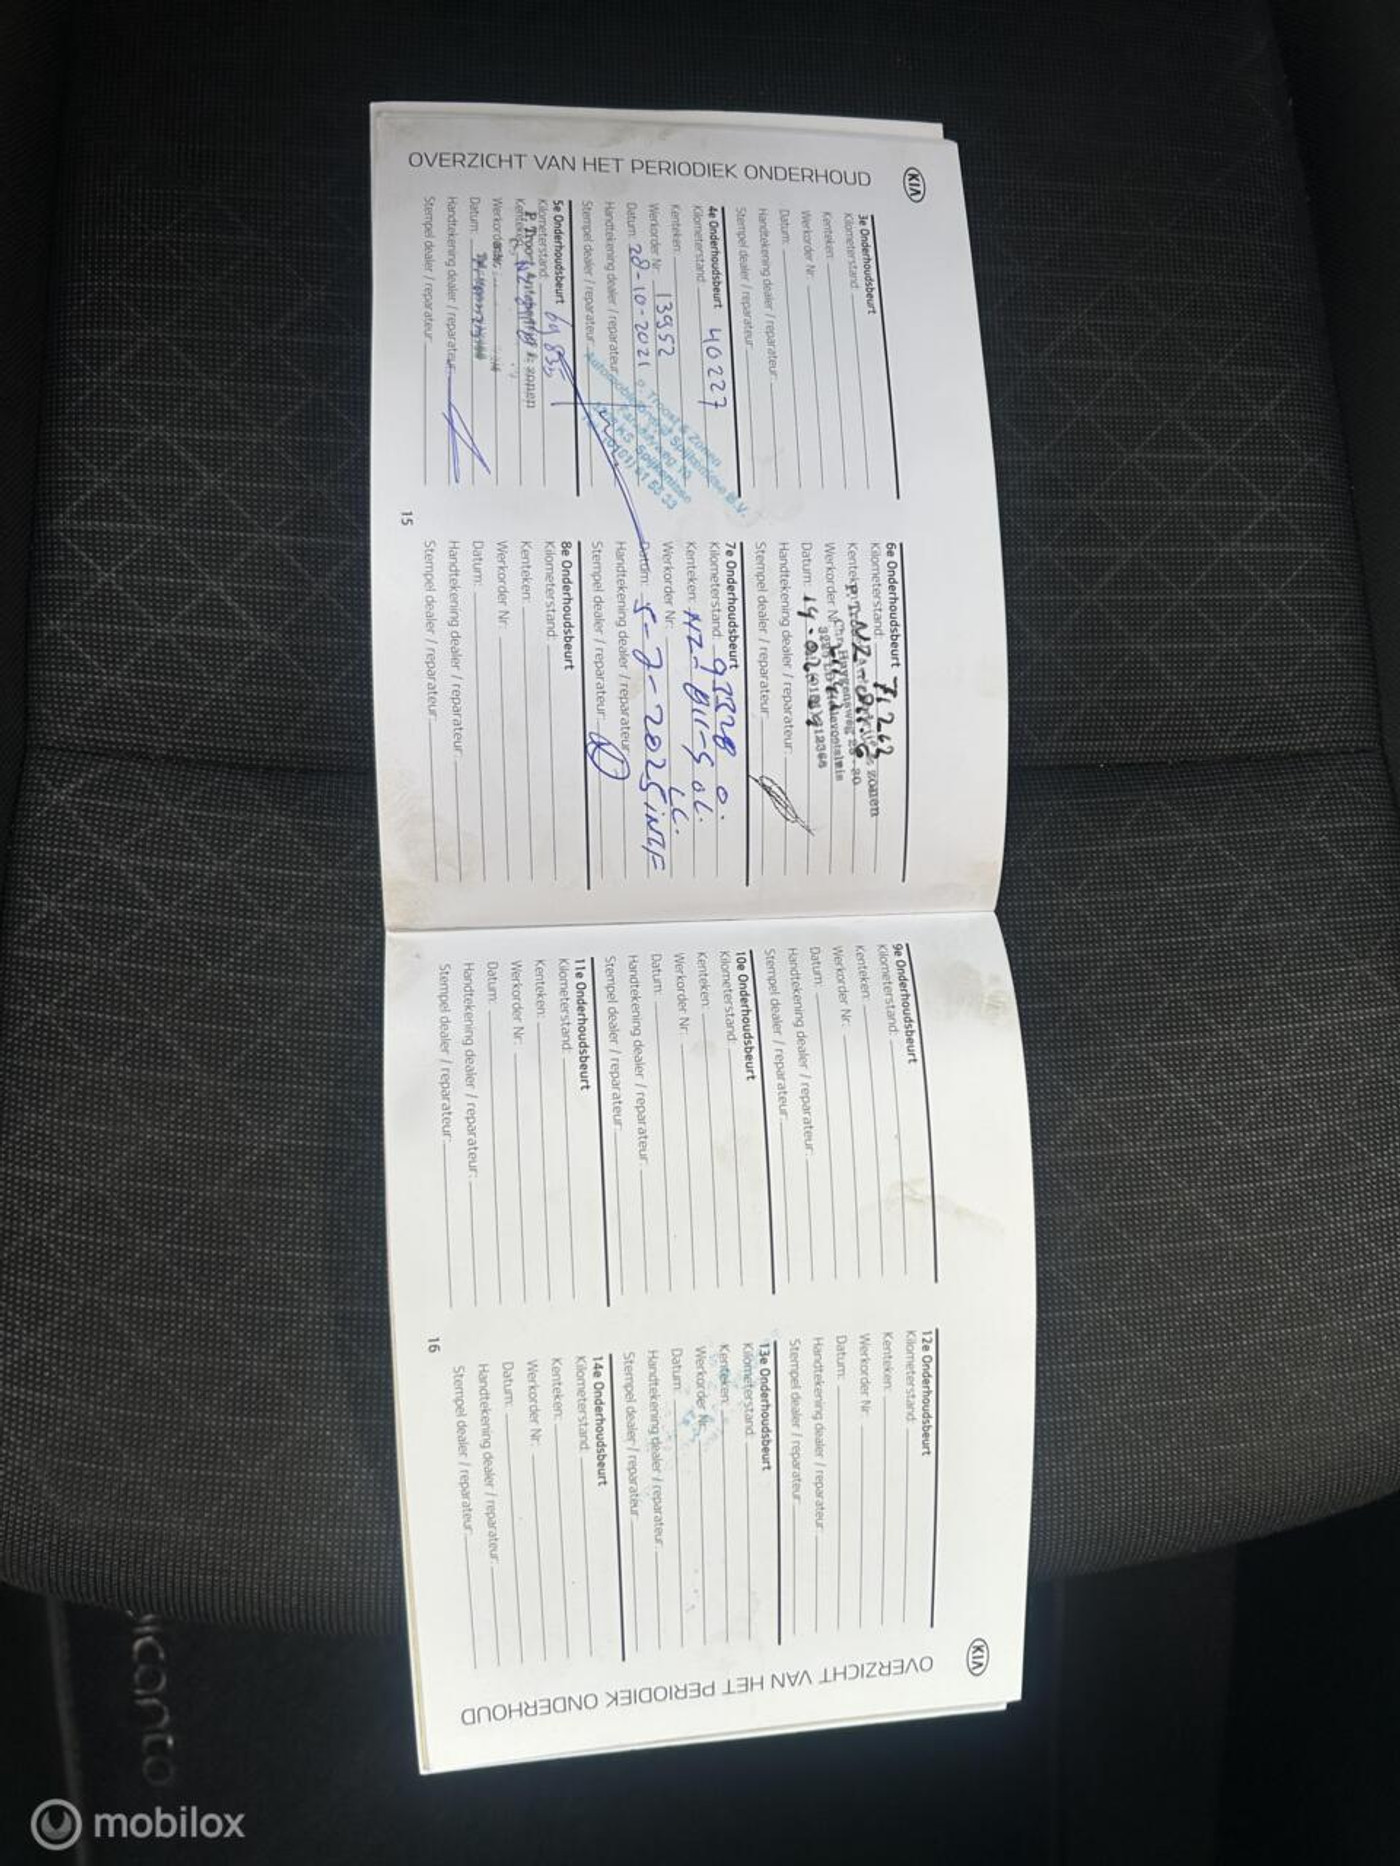 OVERZICHT VAN HET PERIODIEK ONDERHOUD
KIA
3e Onderhoudsbeurt
Kilometerstand:
Kenteken:
Werkorder Nr:
Datum:
Handtekening dealer / reparateur:
Stempel dealer / reparateur:
4e Onderhoudsbeurt
Kilometerstand: 40227
Kenteken:
Werkorder Nr: 13952
Datum: 28-10-2021
Handtekening dealer / reparateur:
Stempel dealer / reparateur:
P. Troost & Zonen
Automobielbedrijf Spijkenisse B.V.
5e Onderhoudsbeurt
Kilometerstand: 69855
Kenteken:
P. Troost & zonen
Werkorder
Datum:
Handtekening dealer / reparateur:
Stempel dealer / reparateur:
15
6e Onderhoudsbeurt
Kilometerstand: 71263
Kenteken:
zonen
Werkorder Nr
Chr. Huygensweg 28-30
Hellevoetsluis
Datum: 14-02-
Handtekening dealer / reparateur:
Stempel dealer / reparateur:
7e Onderhoudsbeurt
Kilometerstand:
Kenteken: NZ-
Werkorder Nr:
Datum: 5-7-2025
Handtekening dealer / reparateur:
Stempel dealer / reparateur:
8e Onderhoudsbeurt
Kilometerstand:
Kenteken:
Werkorder Nr:
Datum:
Handtekening dealer / reparateur:
Stempel dealer / reparateur:
9e Onderhoudsbeurt
Kilometerstand:
Kenteken:
Werkorder Nr:
Datum:
Handtekening dealer / reparateur:
Stempel dealer / reparateur:
10e Onderhoudsbeurt
Kilometerstand:
Kenteken:
Werkorder Nr:
Datum:
Handtekening dealer / reparateur:
Stempel dealer / reparateur:
11e Onderhoudsbeurt
Kilometerstand:
Kenteken:
Werkorder Nr:
Datum:
Handtekening dealer / reparateur:
Stempel dealer / reparateur:
16
12e Onderhoudsbeurt
Kilometerstand:
Kenteken:
Werkorder Nr:
Datum:
Handtekening dealer / reparateur:
Stempel dealer / reparateur:
13e Onderhoudsbeurt
Kilometerstand:
Kenteken:
Werkorder Nr:
Datum:
Handtekening dealer / reparateur:
Stempel dealer / reparateur:
14e Onderhoudsbeurt
Kilometerstand:
Kenteken:
Werkorder Nr:
Datum:
Handtekening dealer / reparateur:
Stempel dealer / reparateur:
KIA
OVERZICHT VAN HET PERIODIEK ONDERHOUD
picanto
mobilox